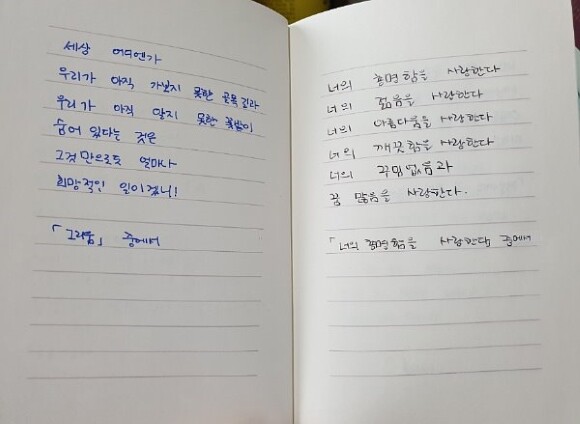 세상 어디엔가
우리가 아직 가보지 못한 골목길과
우리가 아직 알지 못한 꽃밭이
숨어 있다는 것은
그것만으로도 얼마나
희망적인 일이겠니!
「그리움」 중에서
너의 총명함을 사랑한다
너의 젊음을 사랑한다
너의 아름다움을 사랑한다
너의 깨끗함을 사랑한다
너의 꾸밈없음과
꿈 많음을 사랑한다.
「너의 총명함을 사랑한다」 중에서